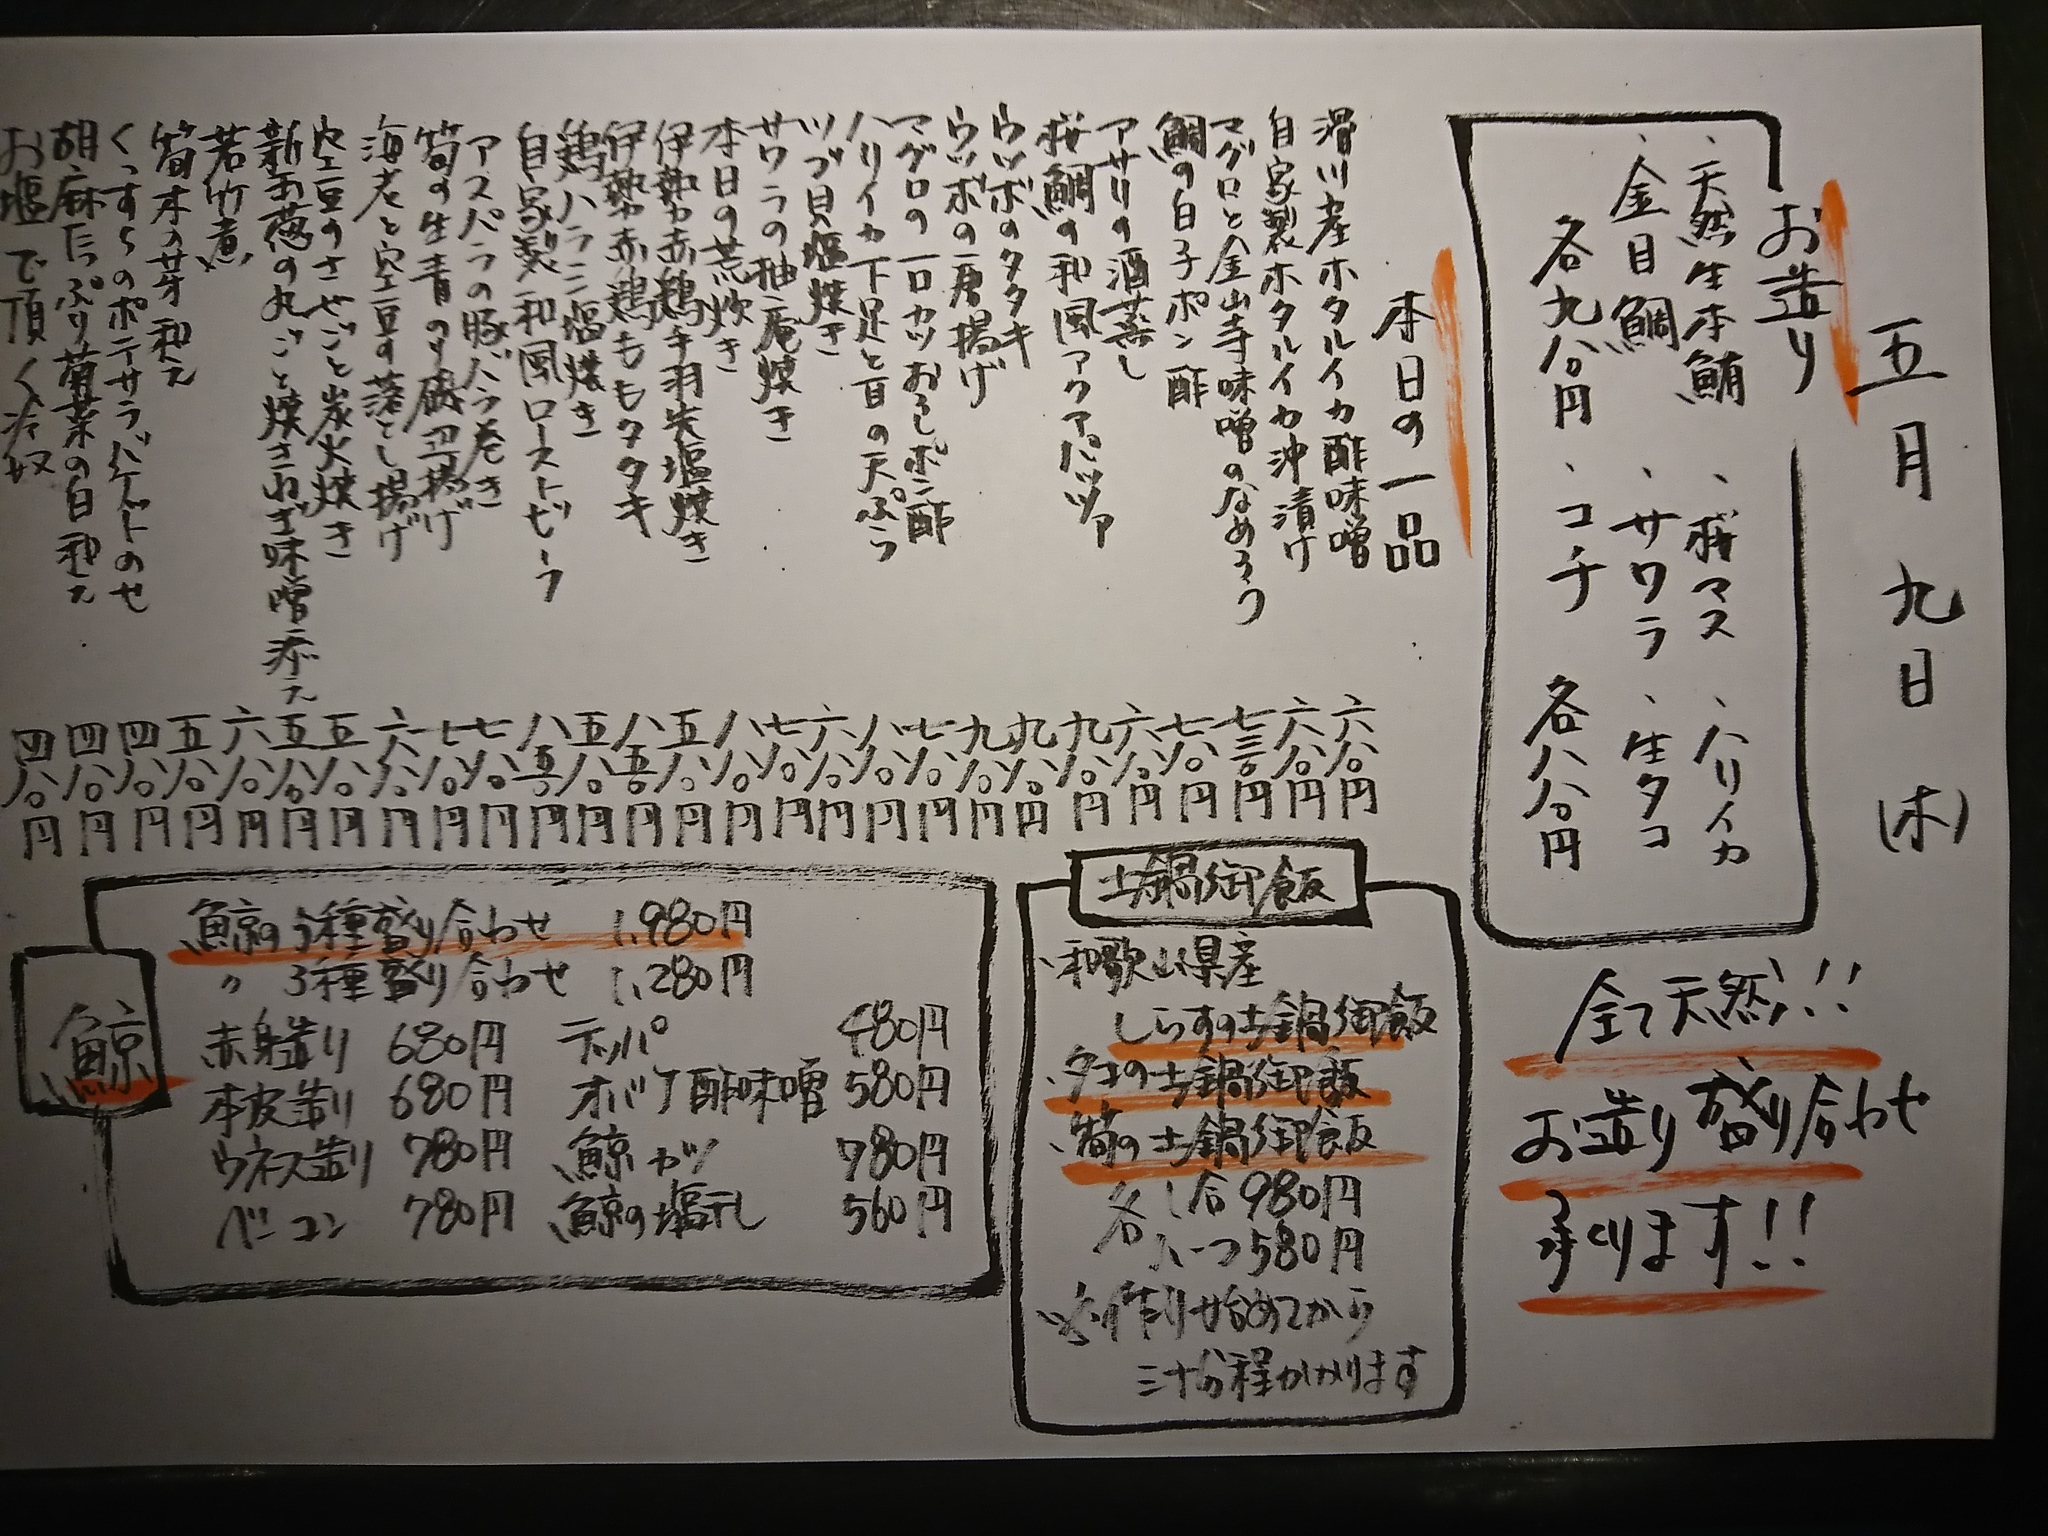 五月九日(木)
お造り
、天然生本鮪 、桜マス 、ハリイカ
、金目鯛 、サワラ 、生タコ
各九八〇円 、コチ 各八八〇円
全て天然!!
お造り盛り合わせ
承ります!!
本日の一品
滑川産ホタルイカ酢味噌 六八〇円
自家製ホタルイカ沖漬け 六八〇円
マグロと金山寺味噌のなめろう 七三〇円
鯛の白子ポン酢 七八〇円
アサリの酒蒸し 六八〇円
桜鯛の和風アクアパッツァ 九八〇円
ウツボのタタキ 九八〇円
ウツボの唐揚げ 九八〇円
マグロの一口カツおろしポン酢 七八〇円
ハリイカ下足と豆の天ぷら 八八〇円
ツブ貝塩焼き 六八〇円
サワラの柚庵焼き 七八〇円
本日の荒炊き 八八〇円
伊勢赤鶏手羽先塩焼き 五八〇円
伊勢赤鶏ももタタキ 八五〇円
鶏ハラミ塩焼き 五八〇円
自家製和風ローストビーフ 八五〇円
アスパラの豚バラ巻き 七八〇円
筍の生青のり磯辺揚げ 七八〇円
海老と空豆の落とし揚げ 六八〇円
空豆のさやごと炭火焼き 五八〇円
新玉葱の丸ごと焼きねぎ味噌添え 五八〇円
若竹煮 六八〇円
筍木の芽和え 五八〇円
くっすらのポテサラバゲットのせ 四八〇円
胡麻たっぷり菊菜の白和え 四八〇円
お塩で頂く冷奴 四八〇円
土鍋御飯
、和歌山県産
しらすの土鍋御飯
、タコの土鍋御飯
、筍の土鍋御飯
各 一合 980円
ハーフ 580円
※作り始めてから
三十分程かかります
鯨
鯨の5種盛り合わせ 1,980円
〃 3種盛り合わせ 1,280円
赤身造り 680円 テッパ 480円
本皮造り 680円 オバケ酢味噌 580円
ウネス造り 780円 鯨カツ 780円
ベーコン 780円 鯨の塩干し 560円